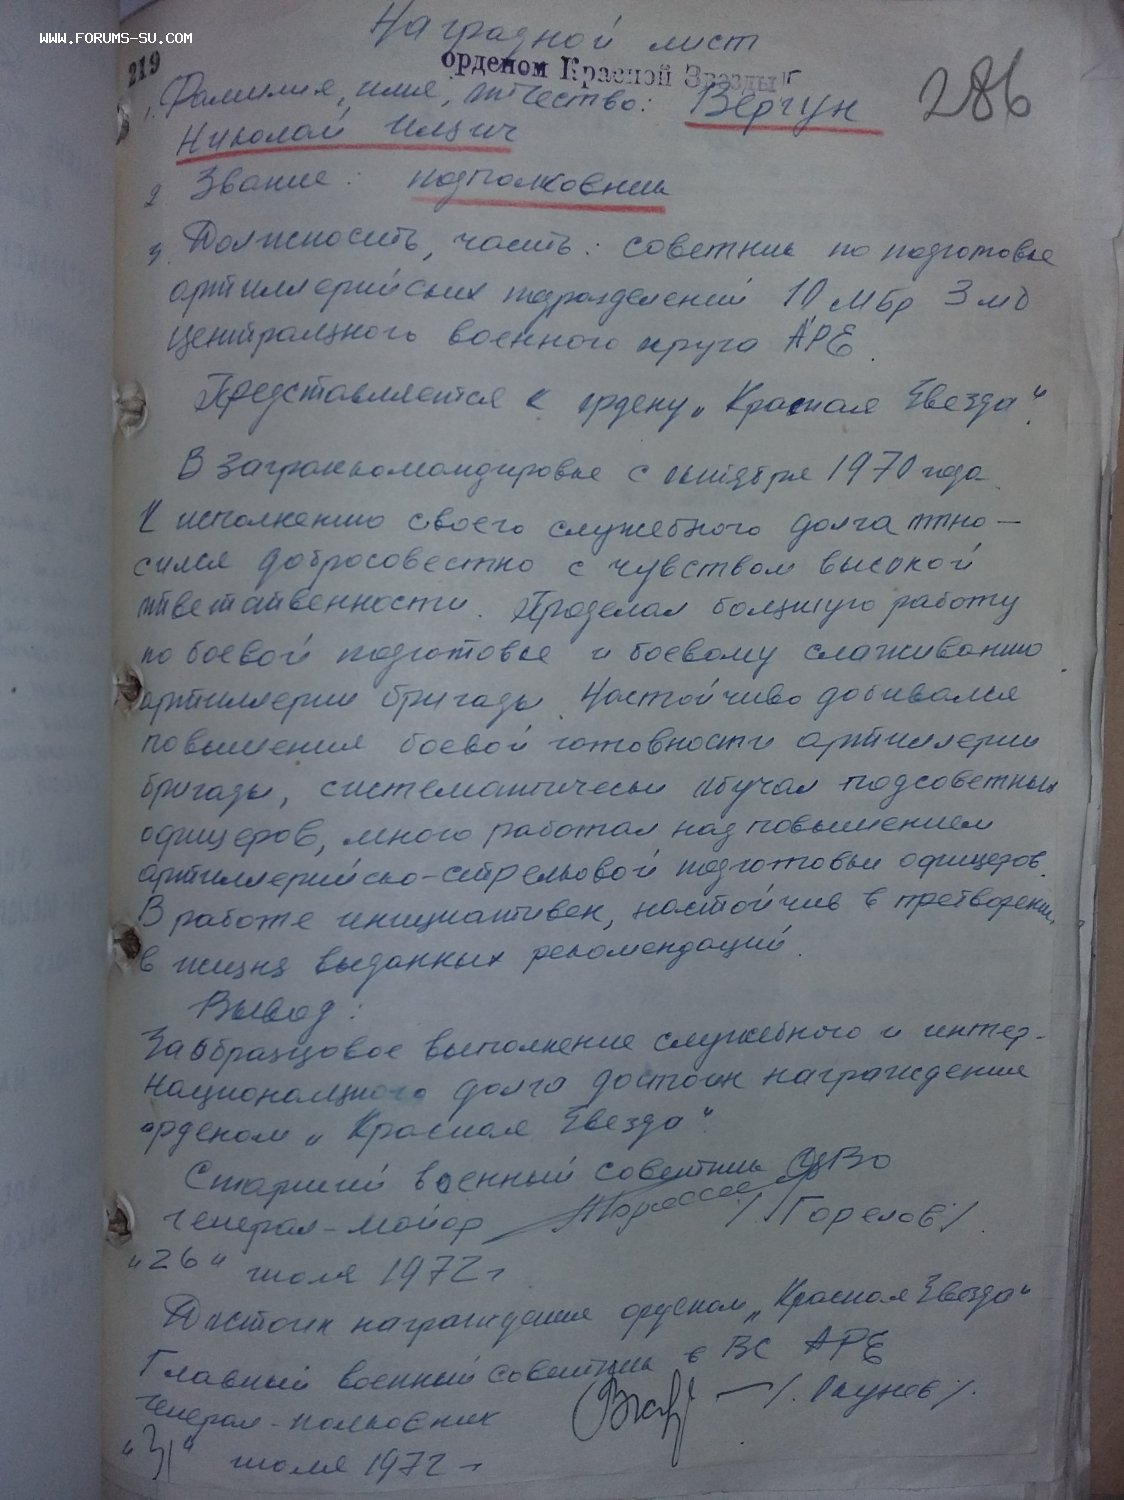 WWW.FORUMS-SU.COM
Наградной лист
219
орденом Красной Звезды"
286
1. Фамилия, имя, отчество: Вергун
Николай Ильич
2 Звание: подполковник
3. Должность, часть: советник по подготовке
артиллерийских подразделений 10 мбр 3 мд
Центрального военного округа АРЕ.
Представляется к ордену „Красная Звезда".
В загранкомандировке с октября 1970 года
К исполнению своего служебного долга отно-
сился добросовестно с чувством высокой
ответственности. Проделал большую работу
по боевой подготовке и боевому слаживанию
артиллерии бригады. Настойчиво добивался
повышения боевой готовности артиллерии
бригады, систематически обучал подсоветных
офицеров, много работал над повышением
артиллерийско-стрелковой подготовки офицеров.
В работе инициативен, настойчив в претворении
в жизнь выданных рекомендаций.
Вывод:
За образцовое выполнение служебного и интер-
национального долга достоин награждения
орденом „Красная Звезда".
Старший военный советник ЦВО
генерал-майор /Горелов/.
„26" июля 1972 г
Достоин награждения орденом „Красная Звезда"
Главный военный советник в ВС АРЕ
генерал-полковник /Окунев/.
„31" июля 1972 г